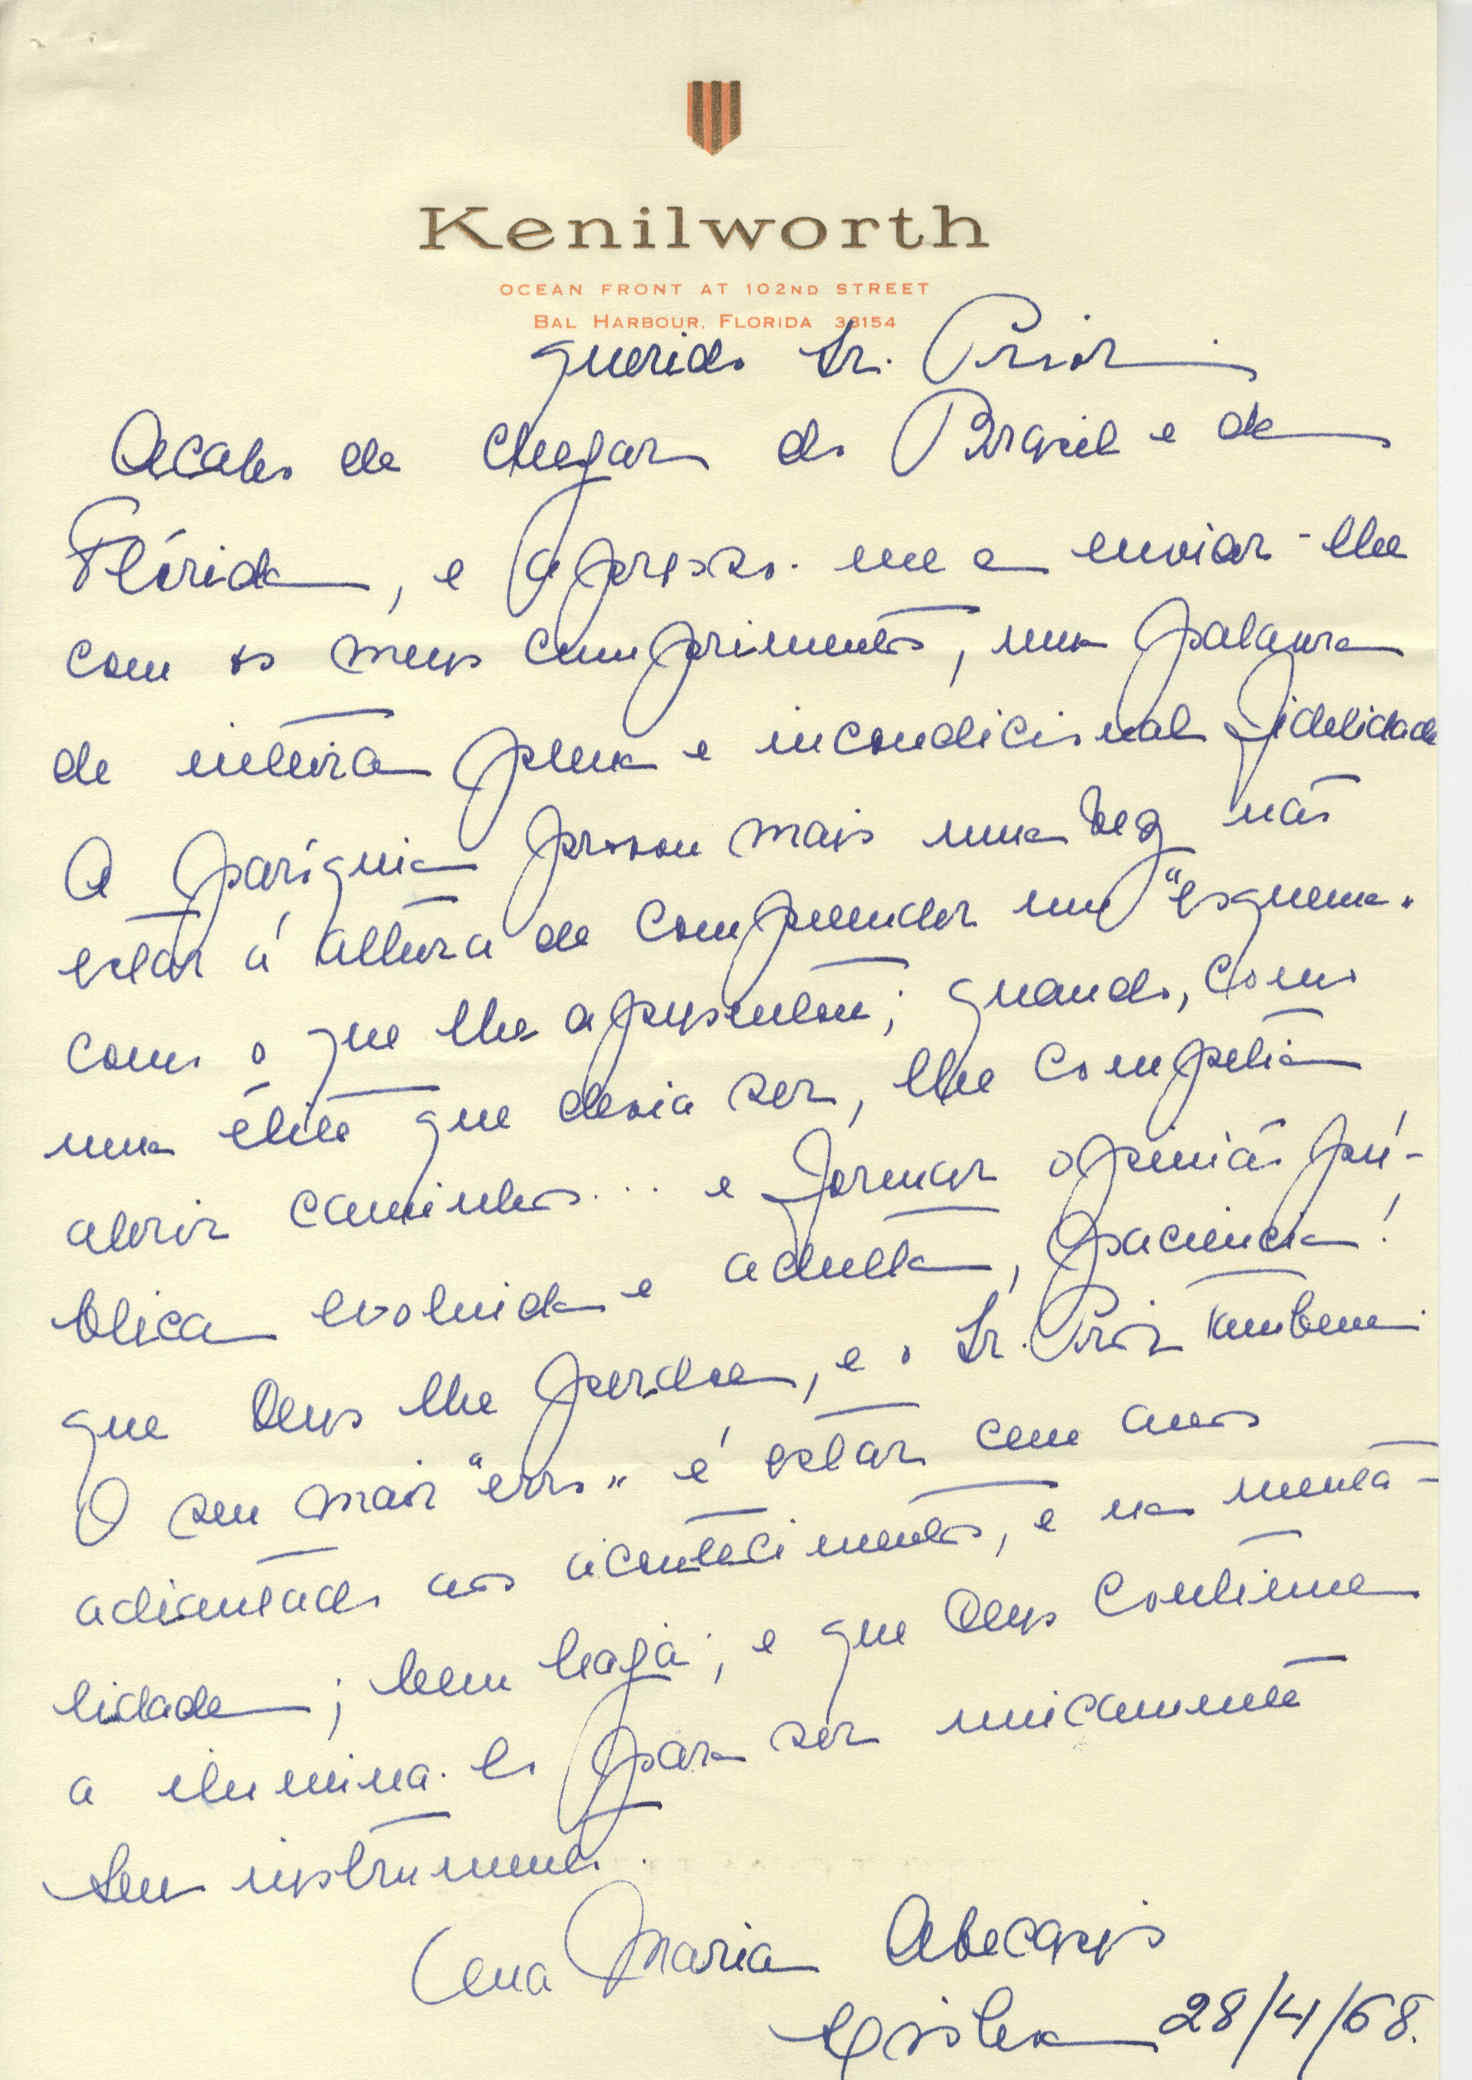 Kenilworth
OCEAN FRONT AT 102ND STREET
BAL HARBOUR, FLORIDA 33154
Querido Sr. Prior
Acabo de chegar do Brasil e da
Flórida, e apresso-me a enviar-lhe
com os meus cumprimentos, uma palavra
de inteira plena e incondicional fidelidade
A paróquia provou mais uma vez não
estar á altura de compreender um "esquema"
como o que lhe apresentou; quando, como
uma élite que devia ser, lhe competia
abrir caminhos... e formar opinião pú-
blica evoluida e adulta, paciencia!
que Deus lhe perdoe, e o Sr. Prior tambem.
O seu maior "erro" é estar cem anos
adiantado aos acontecimentos, e na menta-
lidade; bem haja; e que Deus continue
a ilumina-lo para ser unicamente
Seu instrumento.
Ana Maria Abecassis
Lisboa 28/4/68.